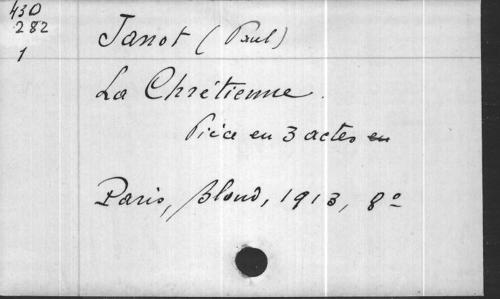 430
282
1
Janot (Paul)
La Chrétienne.
Pièce en 3 actes en
Paris, Bloud, 1913, 8º